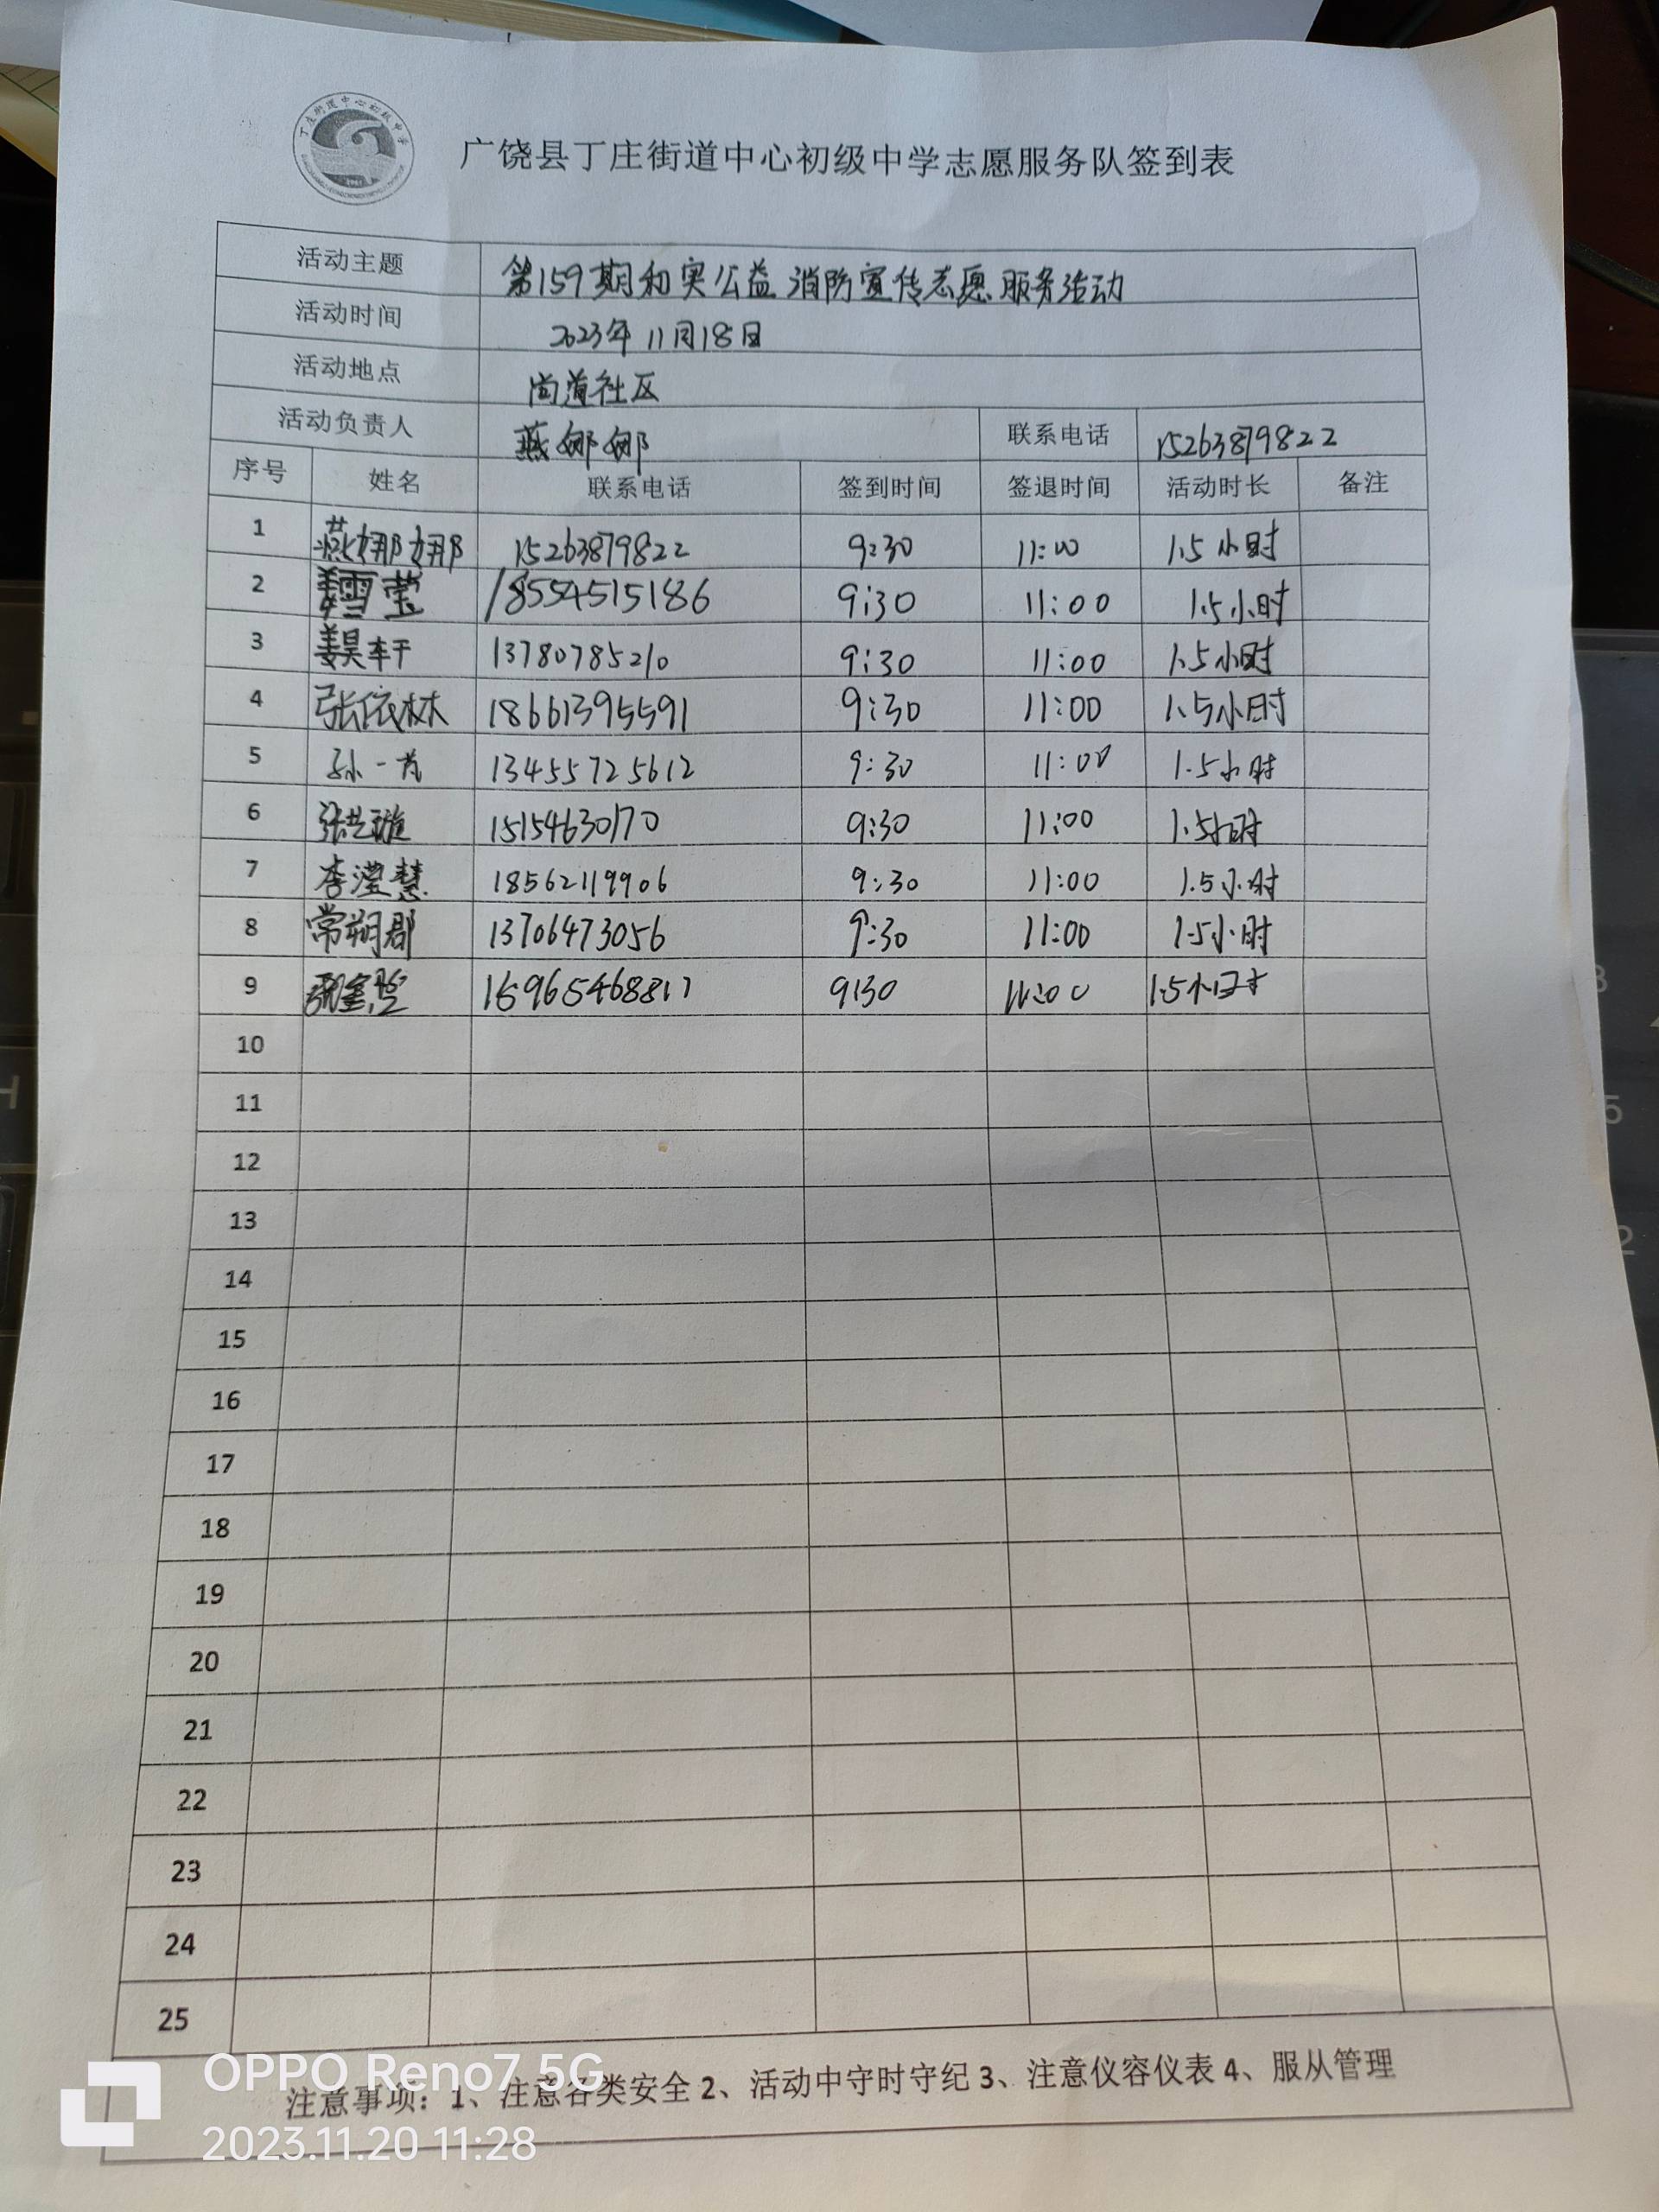 丁庄街道中心初级中学
广饶县丁庄街道中心初级中学志愿服务队签到表
活动主题 第159期和实公益消防宣传志愿服务活动
活动时间 2023年11月18日
活动地点 尚道社区
活动负责人 燕娜娜 联系电话 15263879822
序号 姓名 联系电话 签到时间 签退时间 活动时长 备注
1 燕娜娜 15263879822 9:30 11:00 1.5小时
2 姜雪莹 18554515186 9:30 11:00 1.5小时
3 姜昊轩 13780785210 9:30 11:00 1.5小时
4 张依林 18661395591 9:30 11:00 1.5小时
5 孙一 13455725612 9:30 11:00 1.5小时
6 张艺璇 15154630170 9:30 11:00 1.5小时
7 李滢慧 18562119906 9:30 11:00 1.5小时
8 常朔郡 13706473056 9:30 11:00 1.5小时
9 9:30 11:00 1.5小时
10
11
12
13
14
15
16
17
18
19
20
21
22
23
24
25
注意事项：1、注意各类安全 2、活动中守时守纪 3、注意仪容仪表 4、服从管理
OPPO Reno7 5G
2023.11.20 11:28